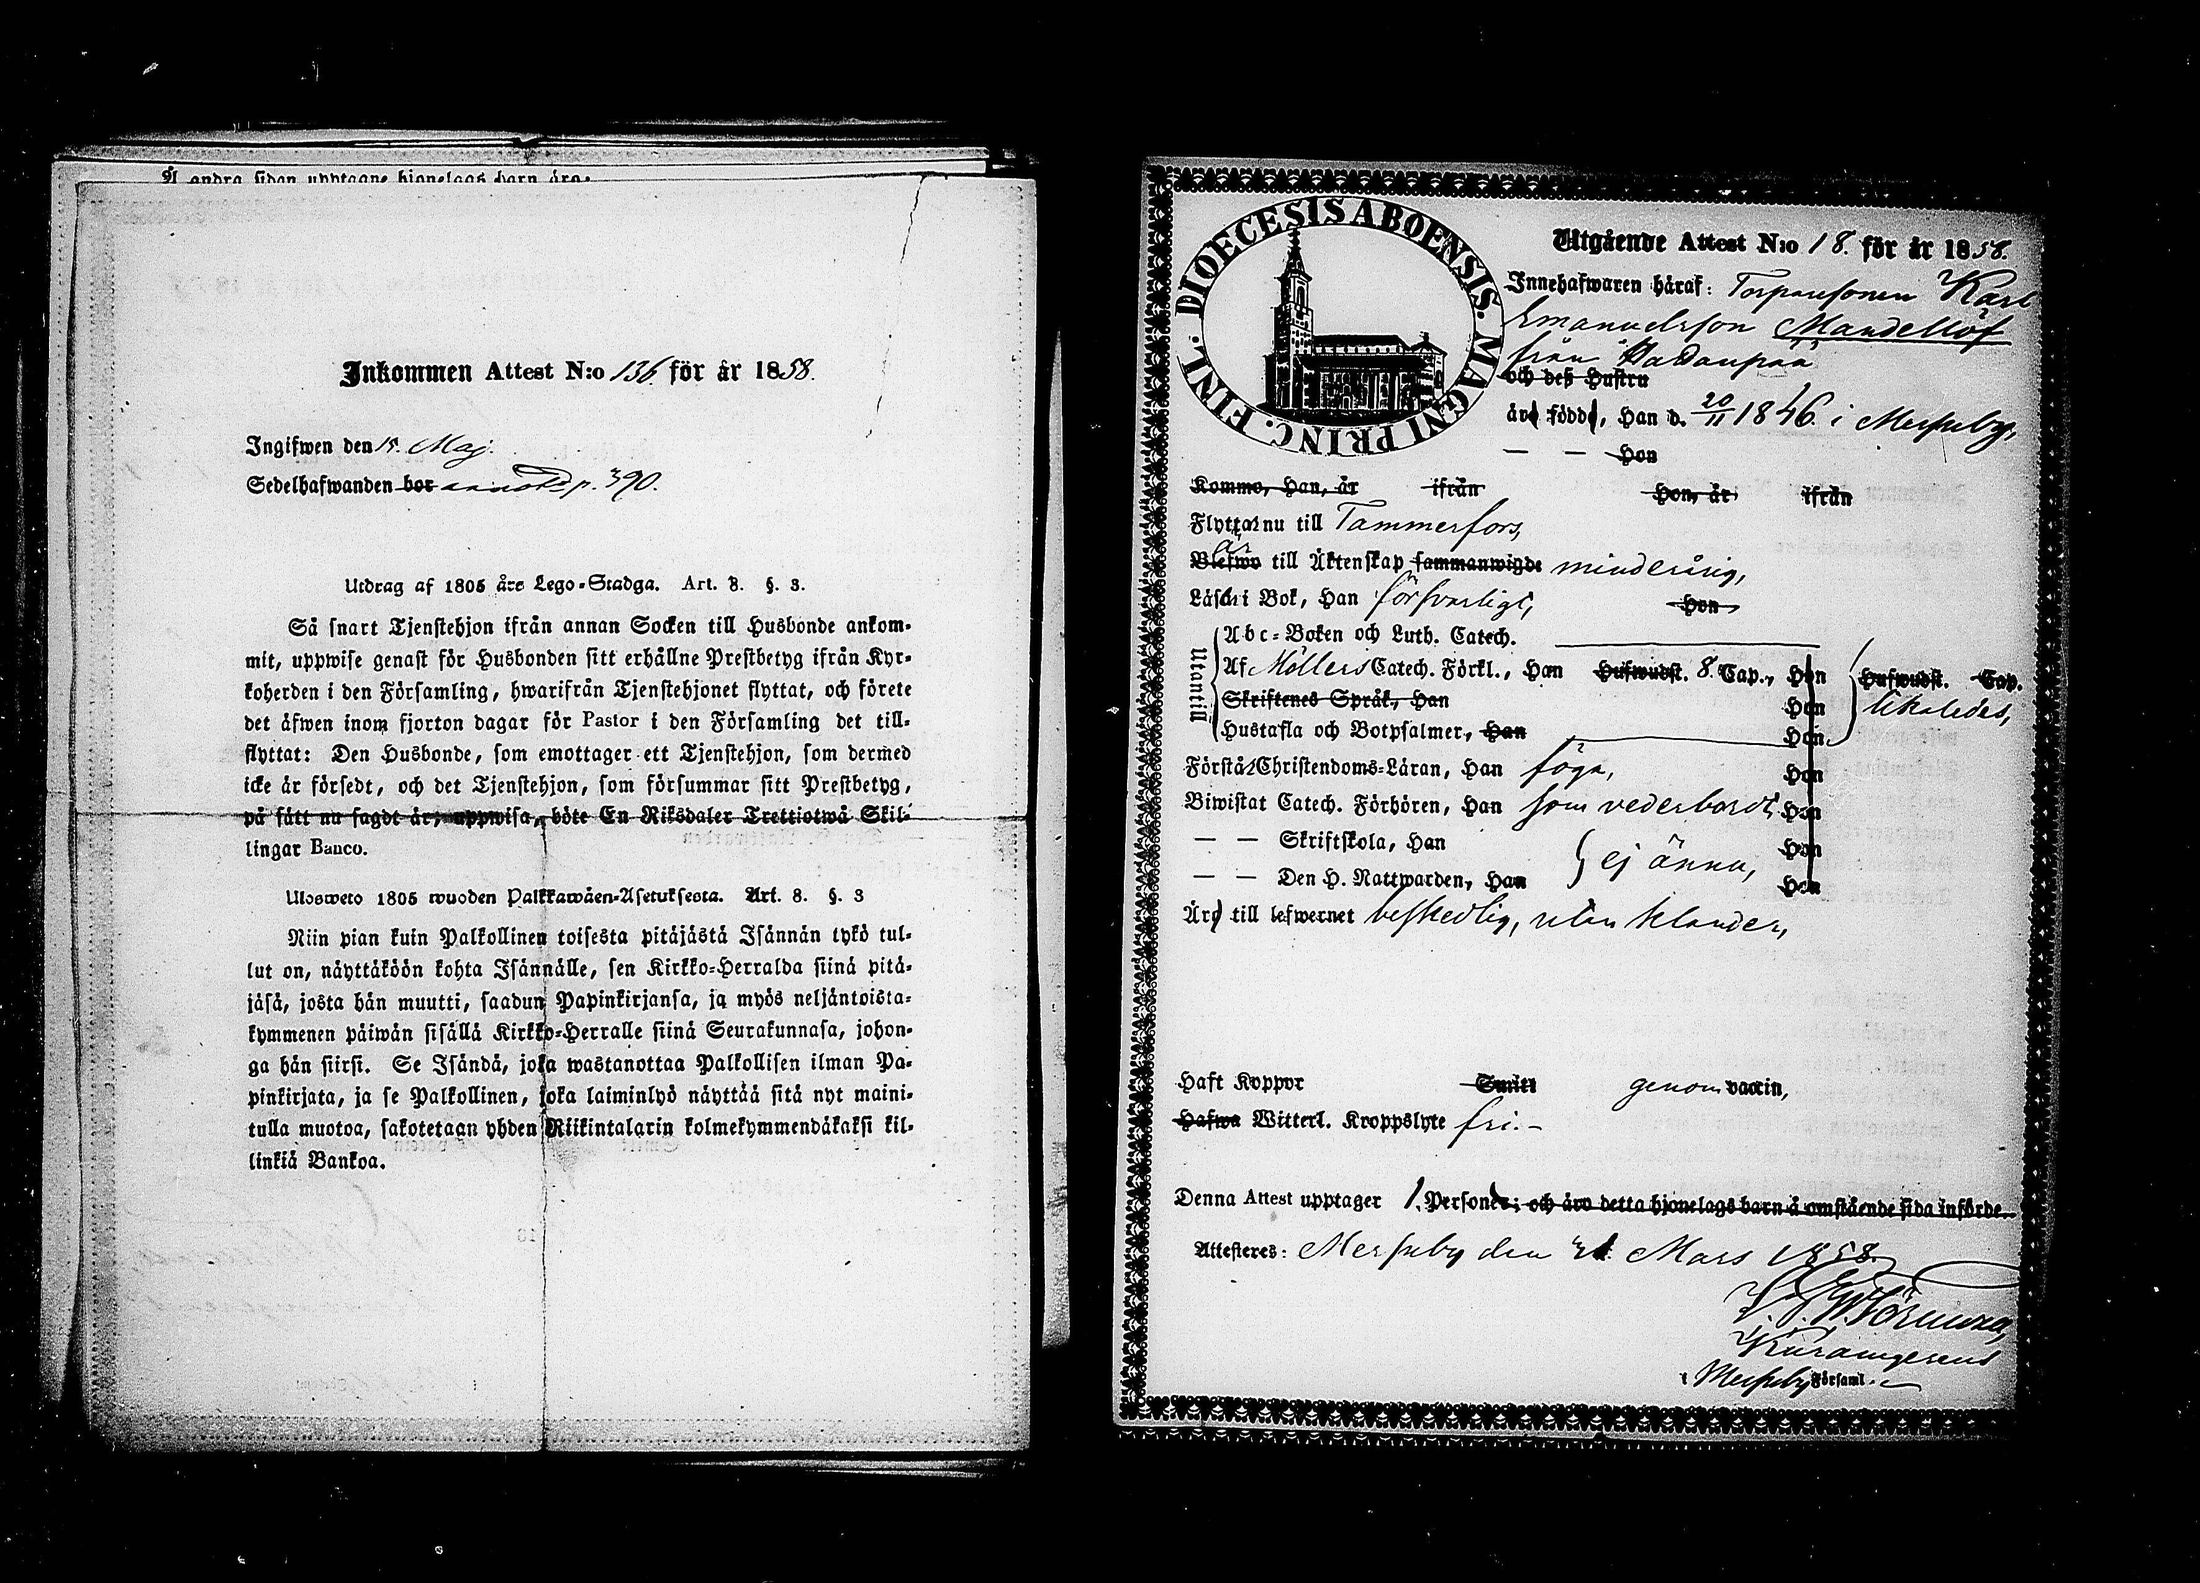 Å andra sidan upptagne hjonelags barn äro:
Inkommen Attest N:o 136. för år 1858.
Ingifwen den 15. Maj.
Sedelhafwanden bor annoterd p. 390.
Utdrag af 1805 års Lego-Stadga. Art. 8. §. 3.
Så snart Tjenstehjon ifrån annan Socken till Husbonde ankom-
mit, uppwise genast för Husbonden sitt erhållne Prestbetyg ifrån Kyr-
koherden i den Församling, hwarifrån Tjenstehjonet flyttat, och förete
det äfwen inom fjorton dagar för Pastor i den Församling det till-
flyttat: Den Husbonde, som emottager ett Tjenstehjon, som dermed
icke är försedt, och det Tjenstehjon, som försummar sitt Prestbetyg,
på sätt nu sagdt är, uppwisa, böte En Riksdaler Trettiotwå Skil-
lingar Banco.
Ulosweto 1805 wuoden Palkkawäen-Asetuksesta. Art. 8. §. 3
Niin pian kuin Palkollinen toisesta pitäjästä Isännän tykö tul-
lut on, näyttäköön kohta Isännälle, sen Kirkko-Herralda siinä pitä-
jäsä, josta hän muutti, saadun Papinkirjansa, ja myös neljäntoista-
kymmenen päiwän sisällä Kirkko-Herralle siinä Seurakunnasa, johon-
ga hän siirsi. Se Isändä, joka wastanottaa Palkollisen ilman Pa-
pinkirjata, ja se Palkollinen, joka laiminlyö näyttää sitä nyt maini-
tulla muotoa, sakotetaan yhden Riikintalarin kolmekymmendäkaksi kil-
linkiä Bankoa.
DIOECESIS ABOENSIS. MAGNI PRINC. FINL.
Utgående Attest N:o 18. för år 1858.
Innehafwaren häraf: Torparesonen Karl
Emanuelsson Mandellöf
från
och deß Hustru
äro födde, Han d. 20/11 1846. i Messuby,
— — Hon
Kommo, Han, år ifrån Hon, år ifrån
Flyttar nu till Tammerfors,
Blefwo är till Äktenskap sammanwigde minderårig,
Läser i Bok, Han försvarligt, Hon
Utantill
Abc-Boken och Luth. Catech.
Af Möllers Catech. Förkl., Han Hufwudst. 8. Cap., Hon Hufwudst. Cap.
Skriftenes Språk, Han Hon likaledes,
Hustafla och Botpsalmer, Han Hon
Förstår Christendoms-Läran, Han föga, Hon
Biwistat Catech. Förhören, Han som vederbordt, Hon
— — Skriftskola, Han Hon
ej ännu,
— — Den H. Nattwarden, Han Hon
Äro till lefwernet beskedlig, utan klander,
Haft Koppor Smitt genom vaccin,
Hafwa Witterl. Kroppslyte fri.-
Denna Attest upptager 1. Personer; och äro detta hjonelags barn å omstående sida införde.
Attesteres: Messuby den Mars 1858.
i Messuby Församl.